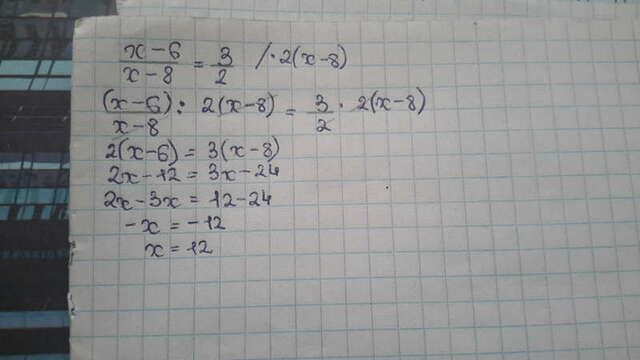 x-6/x-8 = 3/2 /·2(x-8)
(x-6)/x-8 : 2(x-8) = 3/2 · 2(x-8)
2(x-6) = 3(x-8)
2x-12 = 3x-24
2x-3x = 12-24
-x = -12
x = 12